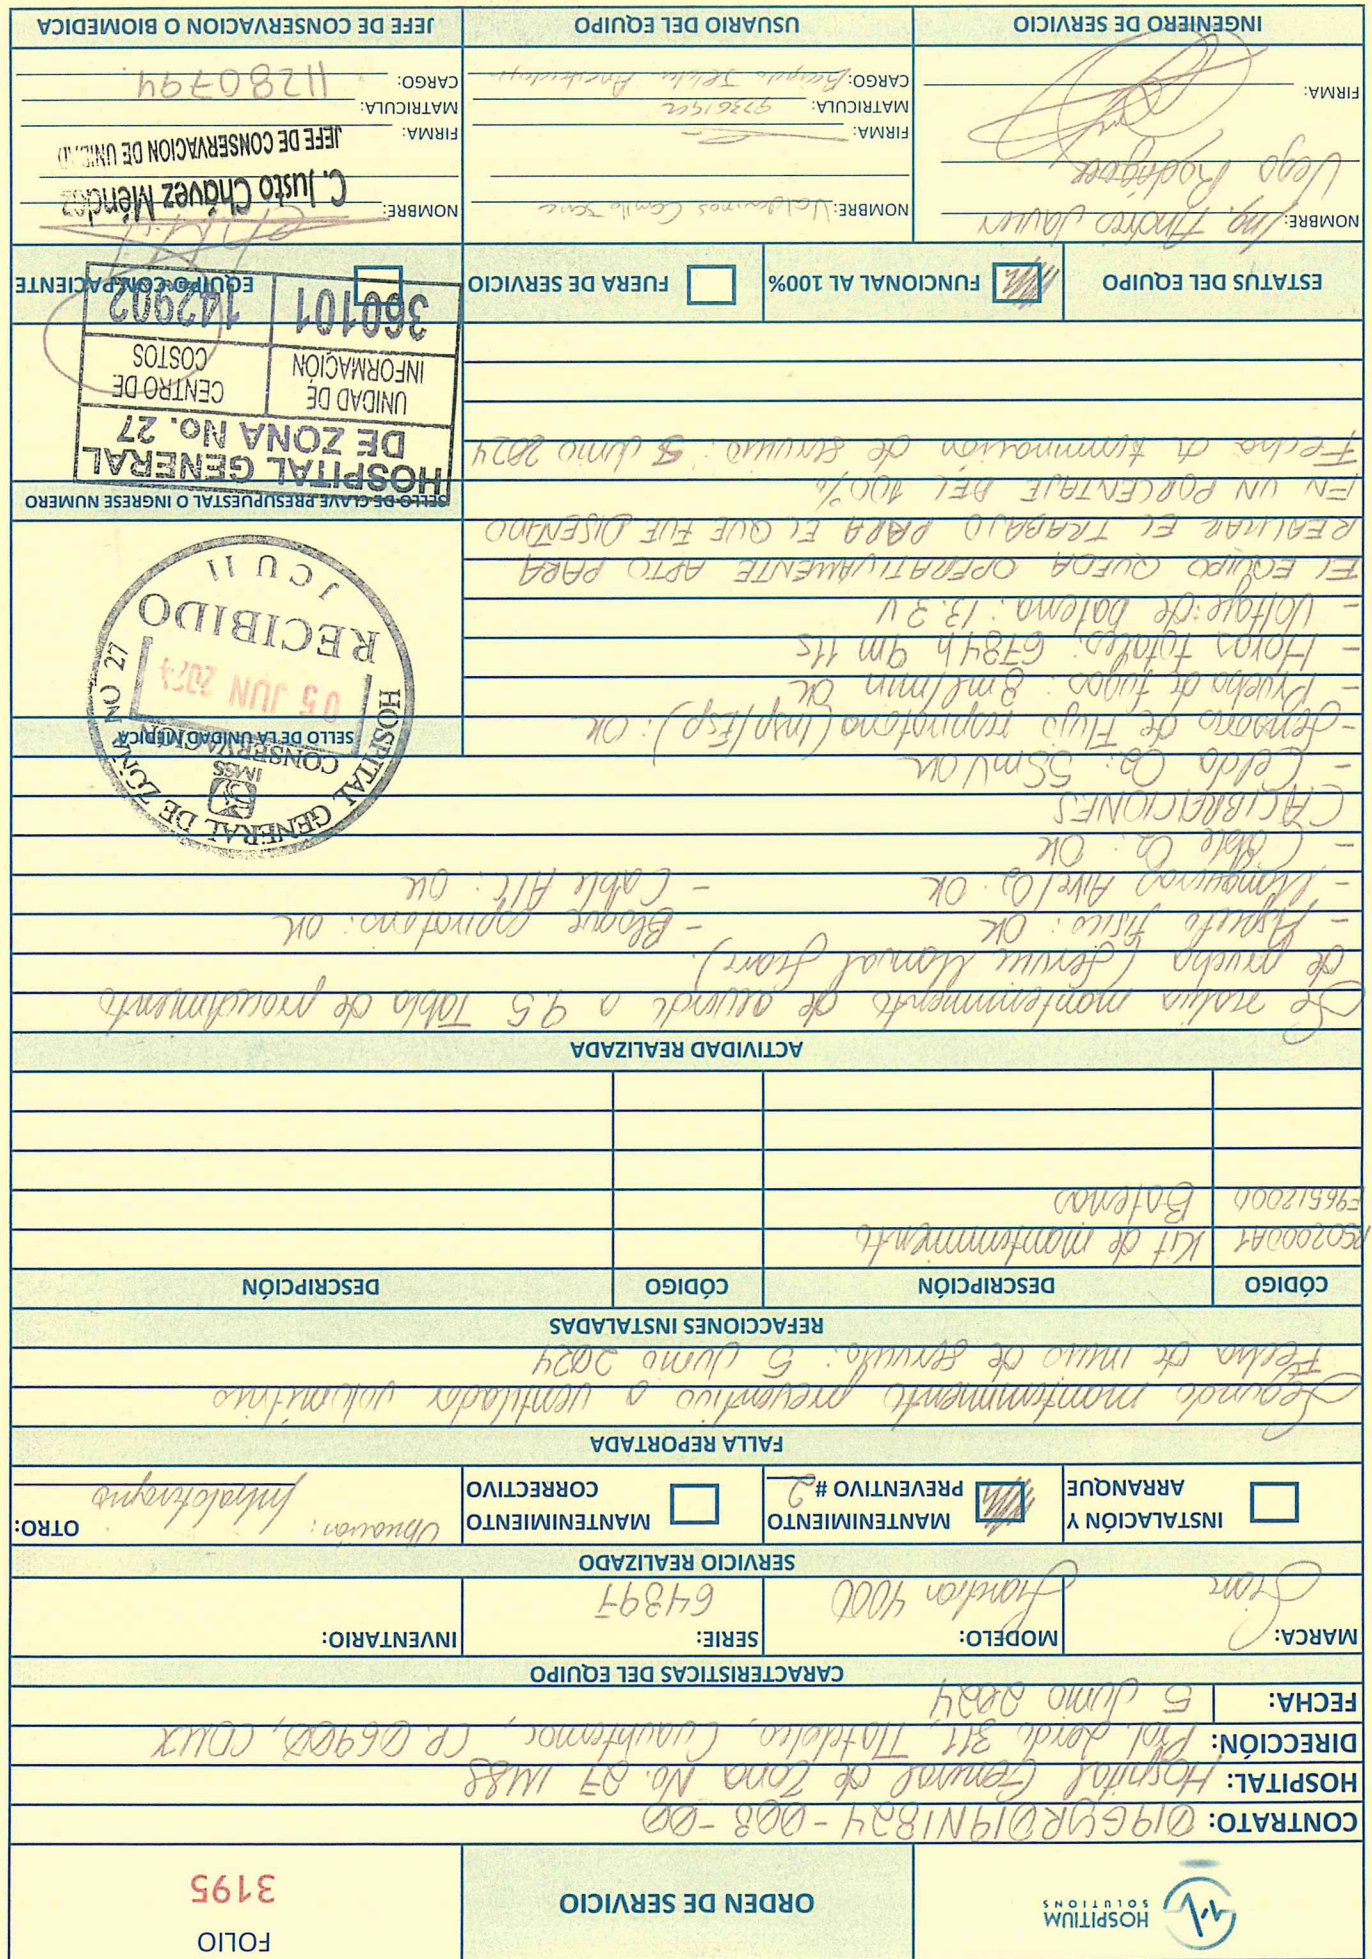 HOSPITIUM
SOLUTIONS
ORDEN DE SERVICIO
FOLIO
3195
CONTRATO: 019GYR019N1824-003-00
HOSPITAL: Hospital General de Zona No. 27 IMSS
DIRECCIÓN: Prol. Lerdo 311, Tlatelolco, Cuauhtemoc, CP. 06900, CDMX
FECHA: 5 Junio 2024
CARACTERISTICAS DEL EQUIPO
MARCA: MODELO: SERIE: INVENTARIO:
Siare 4000 64397
SERVICIO REALIZADO
INSTALACIÓN Y ARRANQUE
MANTENIMIENTO PREVENTIVO # 2
MANTENIMIENTO CORRECTIVO
OTRO:
Ubicación:
FALLA REPORTADA
Segundo mantenimiento preventivo a ventilador volumétrico
Fecha de inicio de servicio: 5 Junio 2024
REFACCIONES INSTALADAS
CÓDIGO DESCRIPCIÓN CÓDIGO DESCRIPCIÓN
R502000A1 Kit de mantenimiento
Baterias
ACTIVIDAD REALIZADA
Se realiza mantenimiento de acuerdo a 9.5 Tabla de procedimiento
de prueba (Service Manual Siare).
- Aspecto físico: OK - Bloque espiratorio: OK
- Mangueras Aire/O2: OK - Cable A/C: OK
- Cable O2: OK
CALIBRACIONES
- Celda O2: 55mV OK
- Sensores de Flujo respiratorio (Insp/Esp): OK
- Prueba de fugas: 3ml/min OK
- Horas totales: 6784h 9m 11s
- Voltaje de bateria: 13.3 V
EL EQUIPO QUEDA OPERATIVAMENTE APTO PARA
REALIZAR EL TRABAJO PARA EL QUE FUE DISEÑADO
EN UN PORCENTAJE DEL 100%
Fecha de terminación de servicio: 5 Junio 2024
SELLO DE LA UNIDAD MEDICA
HOSPITAL GENERAL DE ZONA NO 27
IMSS
CONSERVACION
05 JUN 2024
RECIBIDO
J C U 11
SELLO DE CLAVE PRESUPUESTAL O INGRESE NUMERO
HOSPITAL GENERAL
DE ZONA No. 27
UNIDAD DE INFORMACIÓN
CENTRO DE COSTOS
360101 142902
ESTATUS DEL EQUIPO
FUNCIONAL AL 100%
FUERA DE SERVICIO
EQUIPO CON PACIENTE
NOMBRE: Ing. Andrés Javier
Vega Rodríguez
FIRMA:
INGENIERO DE SERVICIO
NOMBRE:
FIRMA:
MATRICULA:
CARGO:
USUARIO DEL EQUIPO
NOMBRE:
C. Justo Chávez Méndez
JEFE DE CONSERVACION DE UNIDAD
FIRMA:
MATRICULA:
CARGO: 11280794
JEFE DE CONSERVACION O BIOMEDICA